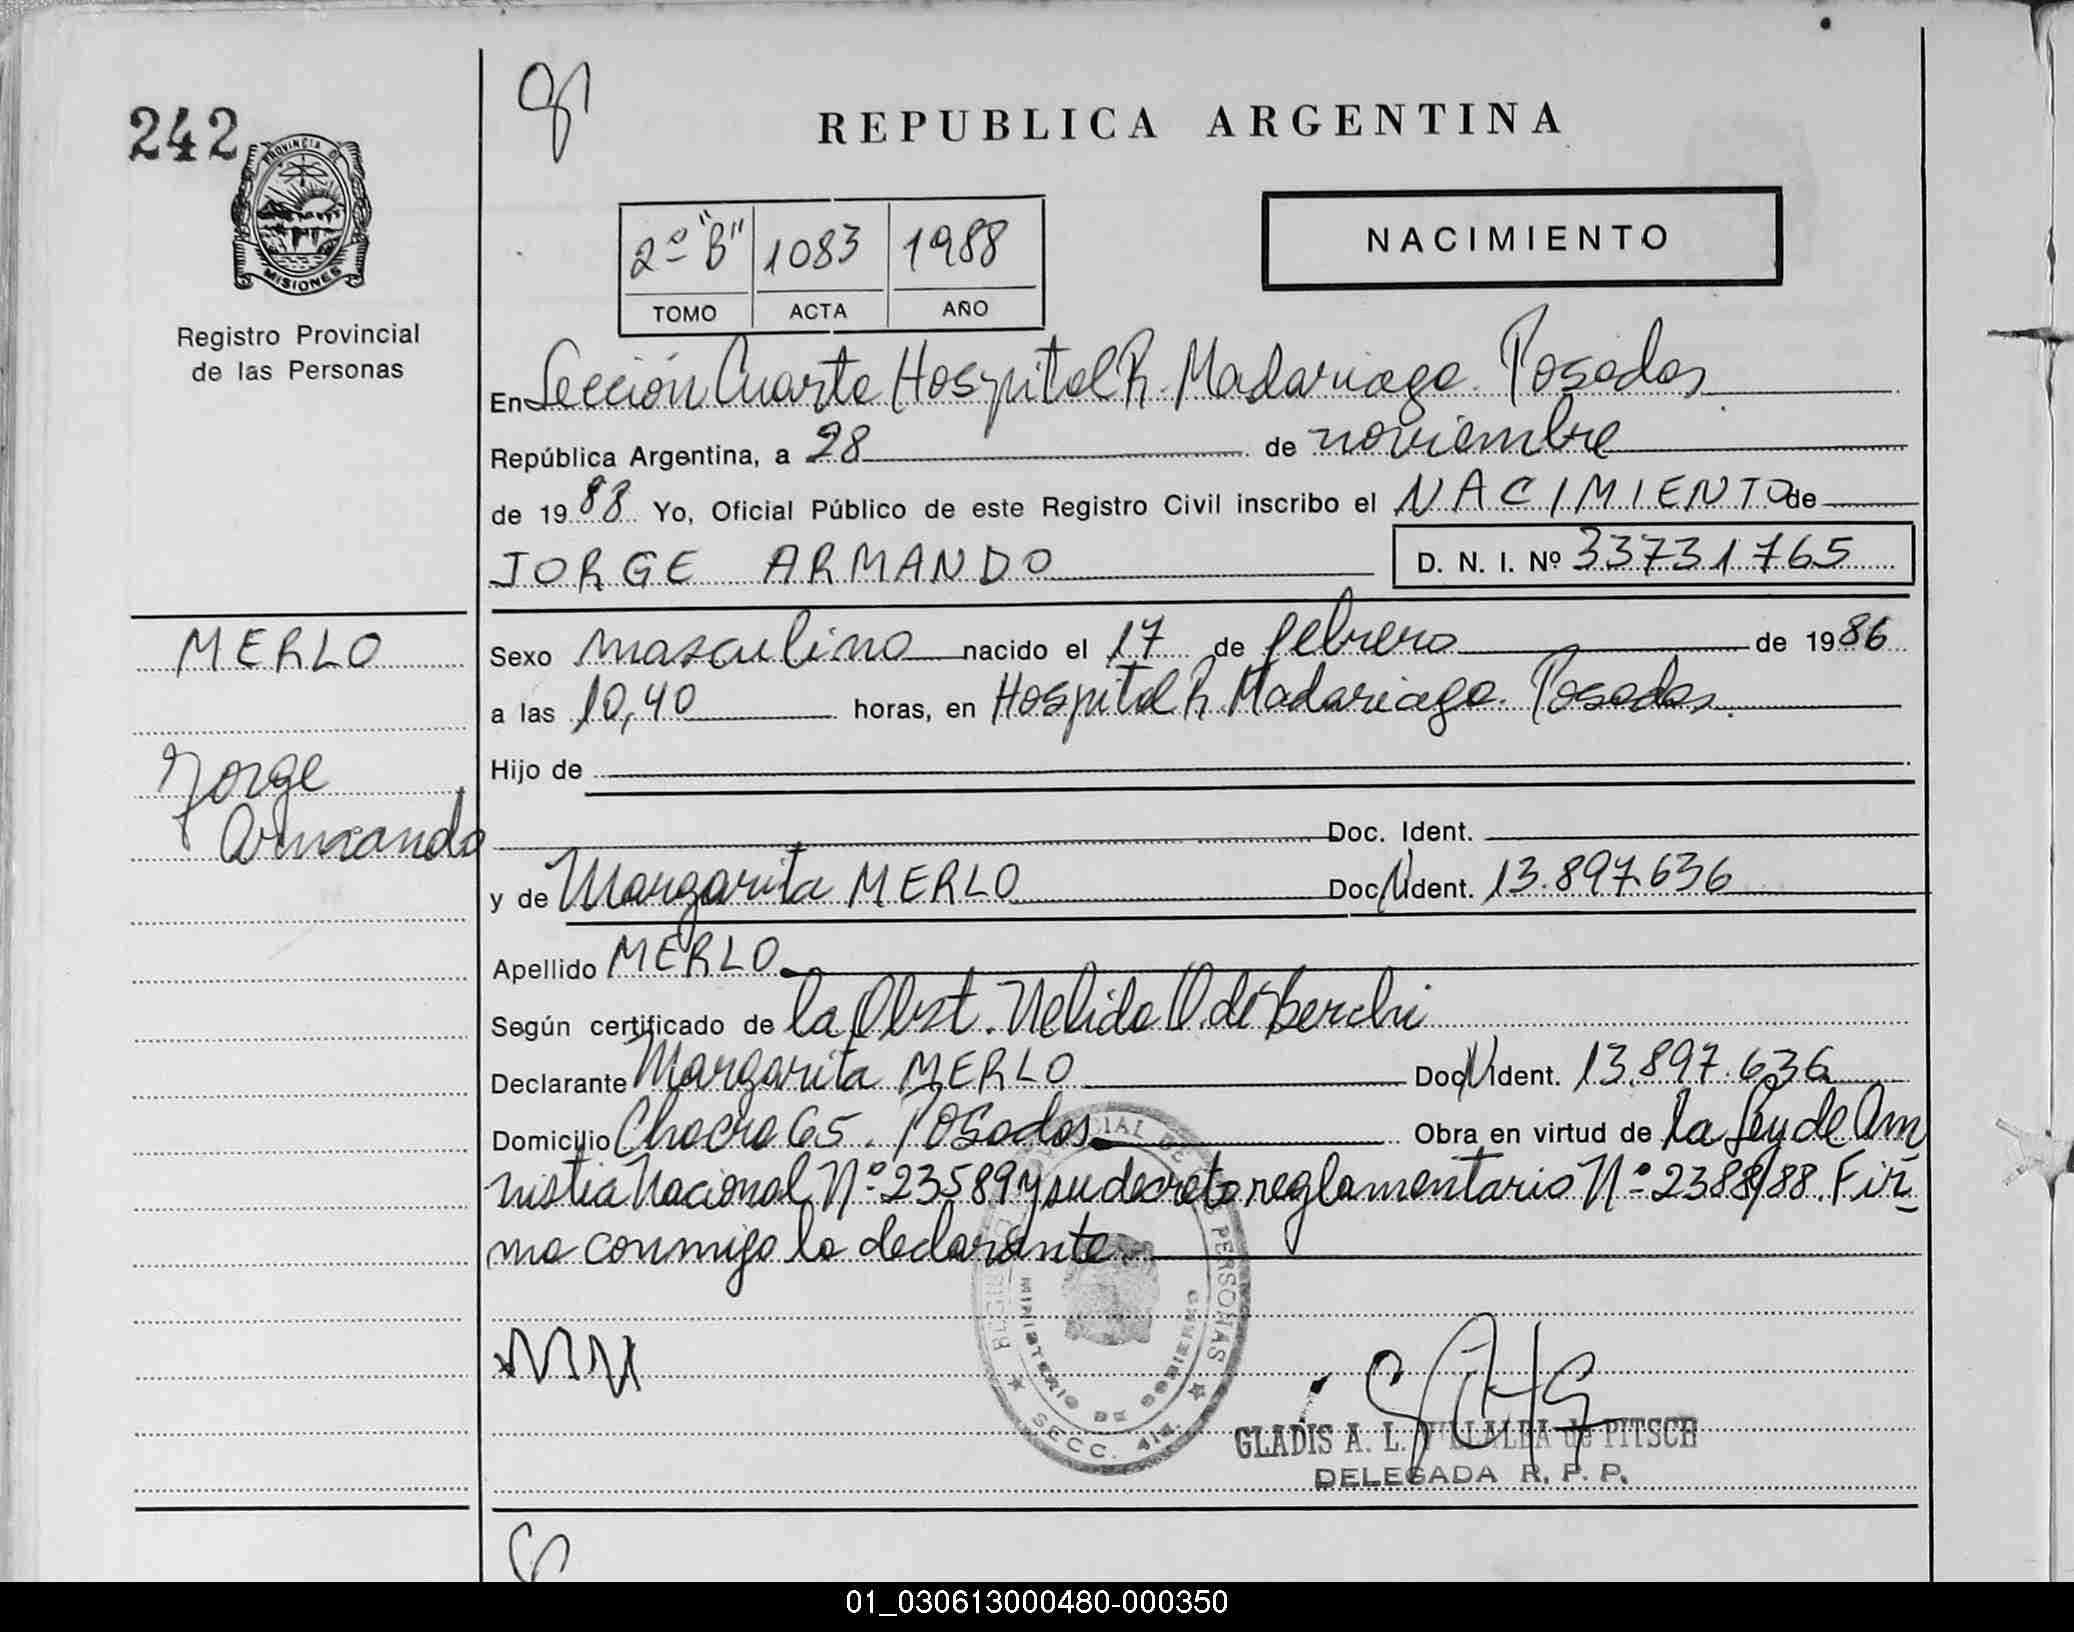 242
PROVINCIA DE
MISIONES
Registro Provincial
de las Personas
REPUBLICA ARGENTINA
2º "B" 1083 1988
TOMO ACTA AÑO
NACIMIENTO
En Sección Cuarta Hospital R. Madariaga. Posadas
República Argentina, a 28 de noviembre
de 1988 Yo, Oficial Público de este Registro Civil inscribo el NACIMIENTO de
JORGE ARMANDO D. N. I. Nº 33731765
MERLO
Jorge
Armando
Sexo masculino nacido el 17 de febrero de 1986
a las 10,40 horas, en Hospital R. Madariaga. Posadas.
Hijo de
Doc. Ident.
y de Margarita MERLO Doc. N Ident. 13.897.636
Apellido MERLO
Según certificado de la Obst. Nelida O. de Berchi
Declarante Margarita MERLO Doc. N Ident. 13.897.636
Domicilio Chacra 65. Posadas Obra en virtud de la Ley de Am
nistia Nacional Nº 23589 y su decreto reglamentario Nº 2388/88. Fir
ma conmigo la declarante
PERSONAS
MINISTERIO DE GOBIERNO
SECC. 4ta.
GLADIS A. L. VILLALBA de PITSCH
DELEGADA R. P. P.
01_030613000480-000350